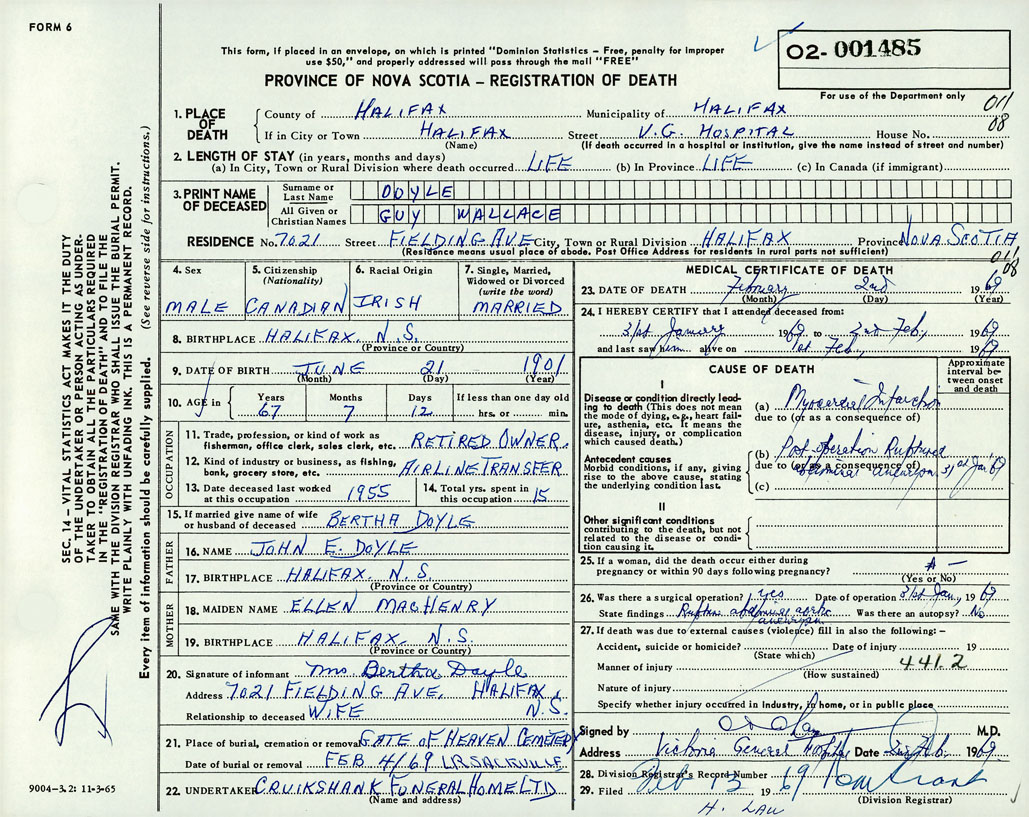 FORM 6
This form, if placed in an envelope, on which is printed "Dominion Statistics - Free, penalty for improper
use $50," and properly addressed will pass through the mail "FREE"
O2-001485
PROVINCE OF NOVA SCOTIA - REGISTRATION OF DEATH
For use of the Department only
011
08
1. PLACE OF DEATH
County of HALIFAX Municipality of HALIFAX
If in City or Town HALIFAX Street V.G. HOSPITAL House No.
(Name) (If death occurred in a hospital or institution, give the name instead of street and number)
2. LENGTH OF STAY (in years, months and days)
(a) In City, Town or Rural Division where death occurred LIFE (b) In Province LIFE (c) In Canada (if immigrant)
3. PRINT NAME OF DECEASED
Surname or Last Name DOYLE
All Given or Christian Names GUY WALLACE
RESIDENCE No. 7021 Street FIELDING AVE City, Town or Rural Division HALIFAX Province NOVA SCOTIA
(Residence means usual place of abode. Post Office Address for residents in rural parts not sufficient)
011
08
4. Sex MALE
5. Citizenship (Nationality) CANADIAN
6. Racial Origin IRISH
7. Single, Married, Widowed or Divorced (write the word) MARRIED
8. BIRTHPLACE HALIFAX, N.S.
(Province or Country)
9. DATE OF BIRTH JUNE 21 1901
(Month) (Day) (Year)
10. AGE in Years 67 Months 7 Days 12 If less than one day old hrs. or min.
OCCUPATION
11. Trade, profession, or kind of work as fisherman, office clerk, sales clerk, etc. RETIRED OWNER.
12. Kind of industry or business, as fishing, bank, grocery store, etc. AIRLINE TRANSFER
13. Date deceased last worked at this occupation 1955
14. Total yrs. spent in this occupation 15
15. If married give name of wife or husband of deceased BERTHA DOYLE
FATHER
16. NAME JOHN E. DOYLE
17. BIRTHPLACE HALIFAX, N.S.
(Province or Country)
MOTHER
18. MAIDEN NAME ELLEN MACHENRY
19. BIRTHPLACE HALIFAX, N.S.
(Province or Country)
20. Signature of informant Mrs Bertha Doyle
Address 7021 FIELDING AVE, HALIFAX, N.S.
Relationship to deceased WIFE
21. Place of burial, cremation or removal GATE OF HEAVEN CEMETERY
Date of burial or removal FEB 4/69 LR. SACKVILLE
22. UNDERTAKER CRUIKSHANK FUNERAL HOME LTD
(Name and address)
MEDICAL CERTIFICATE OF DEATH
23. DATE OF DEATH February 2nd 1969
(Month) (Day) (Year)
24. I HEREBY CERTIFY that I attended deceased from:
31st January 1969 to 2nd Feb, 1969
and last saw him alive on 1st Feb, 1969
CAUSE OF DEATH
Approximate interval between onset and death
I
Disease or condition directly leading to death (This does not mean the mode of dying, e.g., heart failure, asthenia, etc. It means the disease, injury, or complication which caused death.)
(a) Myocardial Infarction
due to (or as a consequence of)
Antecedent causes
Morbid conditions, if any, giving rise to the above cause, stating the underlying condition last.
(b) Post Operation Ruptured
due to (or as a consequence of)
abdominal aneurysm 31st Jan '69
(c)
II
Other significant conditions
contributing to the death, but not related to the disease or condition causing it.
25. If a woman, did the death occur either during pregnancy or within 90 days following pregnancy?
(Yes or No)
26. Was there a surgical operation? yes Date of operation 31st Jan, 1969
State findings Rupture abdominal aortic aneurysm Was there an autopsy? No
27. If death was due to external causes (violence) fill in also the following: -
Accident, suicide or homicide? Date of injury 19
(State which)
Manner of injury 441.2
(How sustained)
Nature of injury
Specify whether injury occurred in Industry, in home, or in public place
Signed by M.D.
Address Victoria General Hospital Date 2nd Feb. 1969
28. Division Registrar's Record Number
29. Filed Feb 12 1969 Tom Grant
(Division Registrar)
H. LAU
9004-3.2: 11-3-65
SEC. 14 - VITAL STATISTICS ACT MAKES IT THE DUTY
OF THE UNDERTAKER OR PERSON ACTING AS UNDER-
TAKER TO OBTAIN ALL THE PARTICULARS REQUIRED
IN THE "REGISTRATION OF DEATH" AND TO FILE THE
SAME WITH THE DIVISION REGISTRAR WHO SHALL ISSUE THE BURIAL PERMIT.
WRITE PLAINLY WITH UNFADING INK. THIS IS A PERMANENT RECORD.
Every item of information should be carefully supplied. (See reverse side for instructions.)